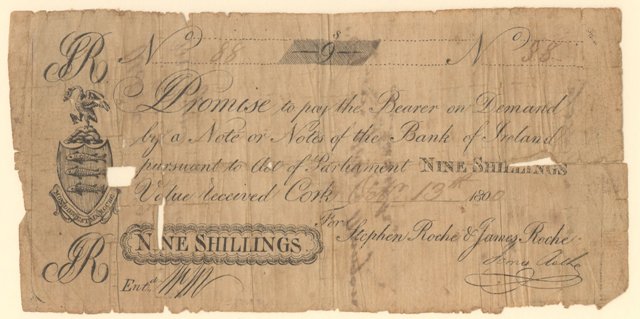 JR
No 88 9s No 88
I Promise to pay the Bearer on Demand
by a Note or Notes of the Bank of Ireland
pursuant to Act of Parliament NINE SHILLINGS
Value received Cork 13th 1800
For Stephen Roche & James Roche
James Roche
NINE SHILLINGS
Entd
JR